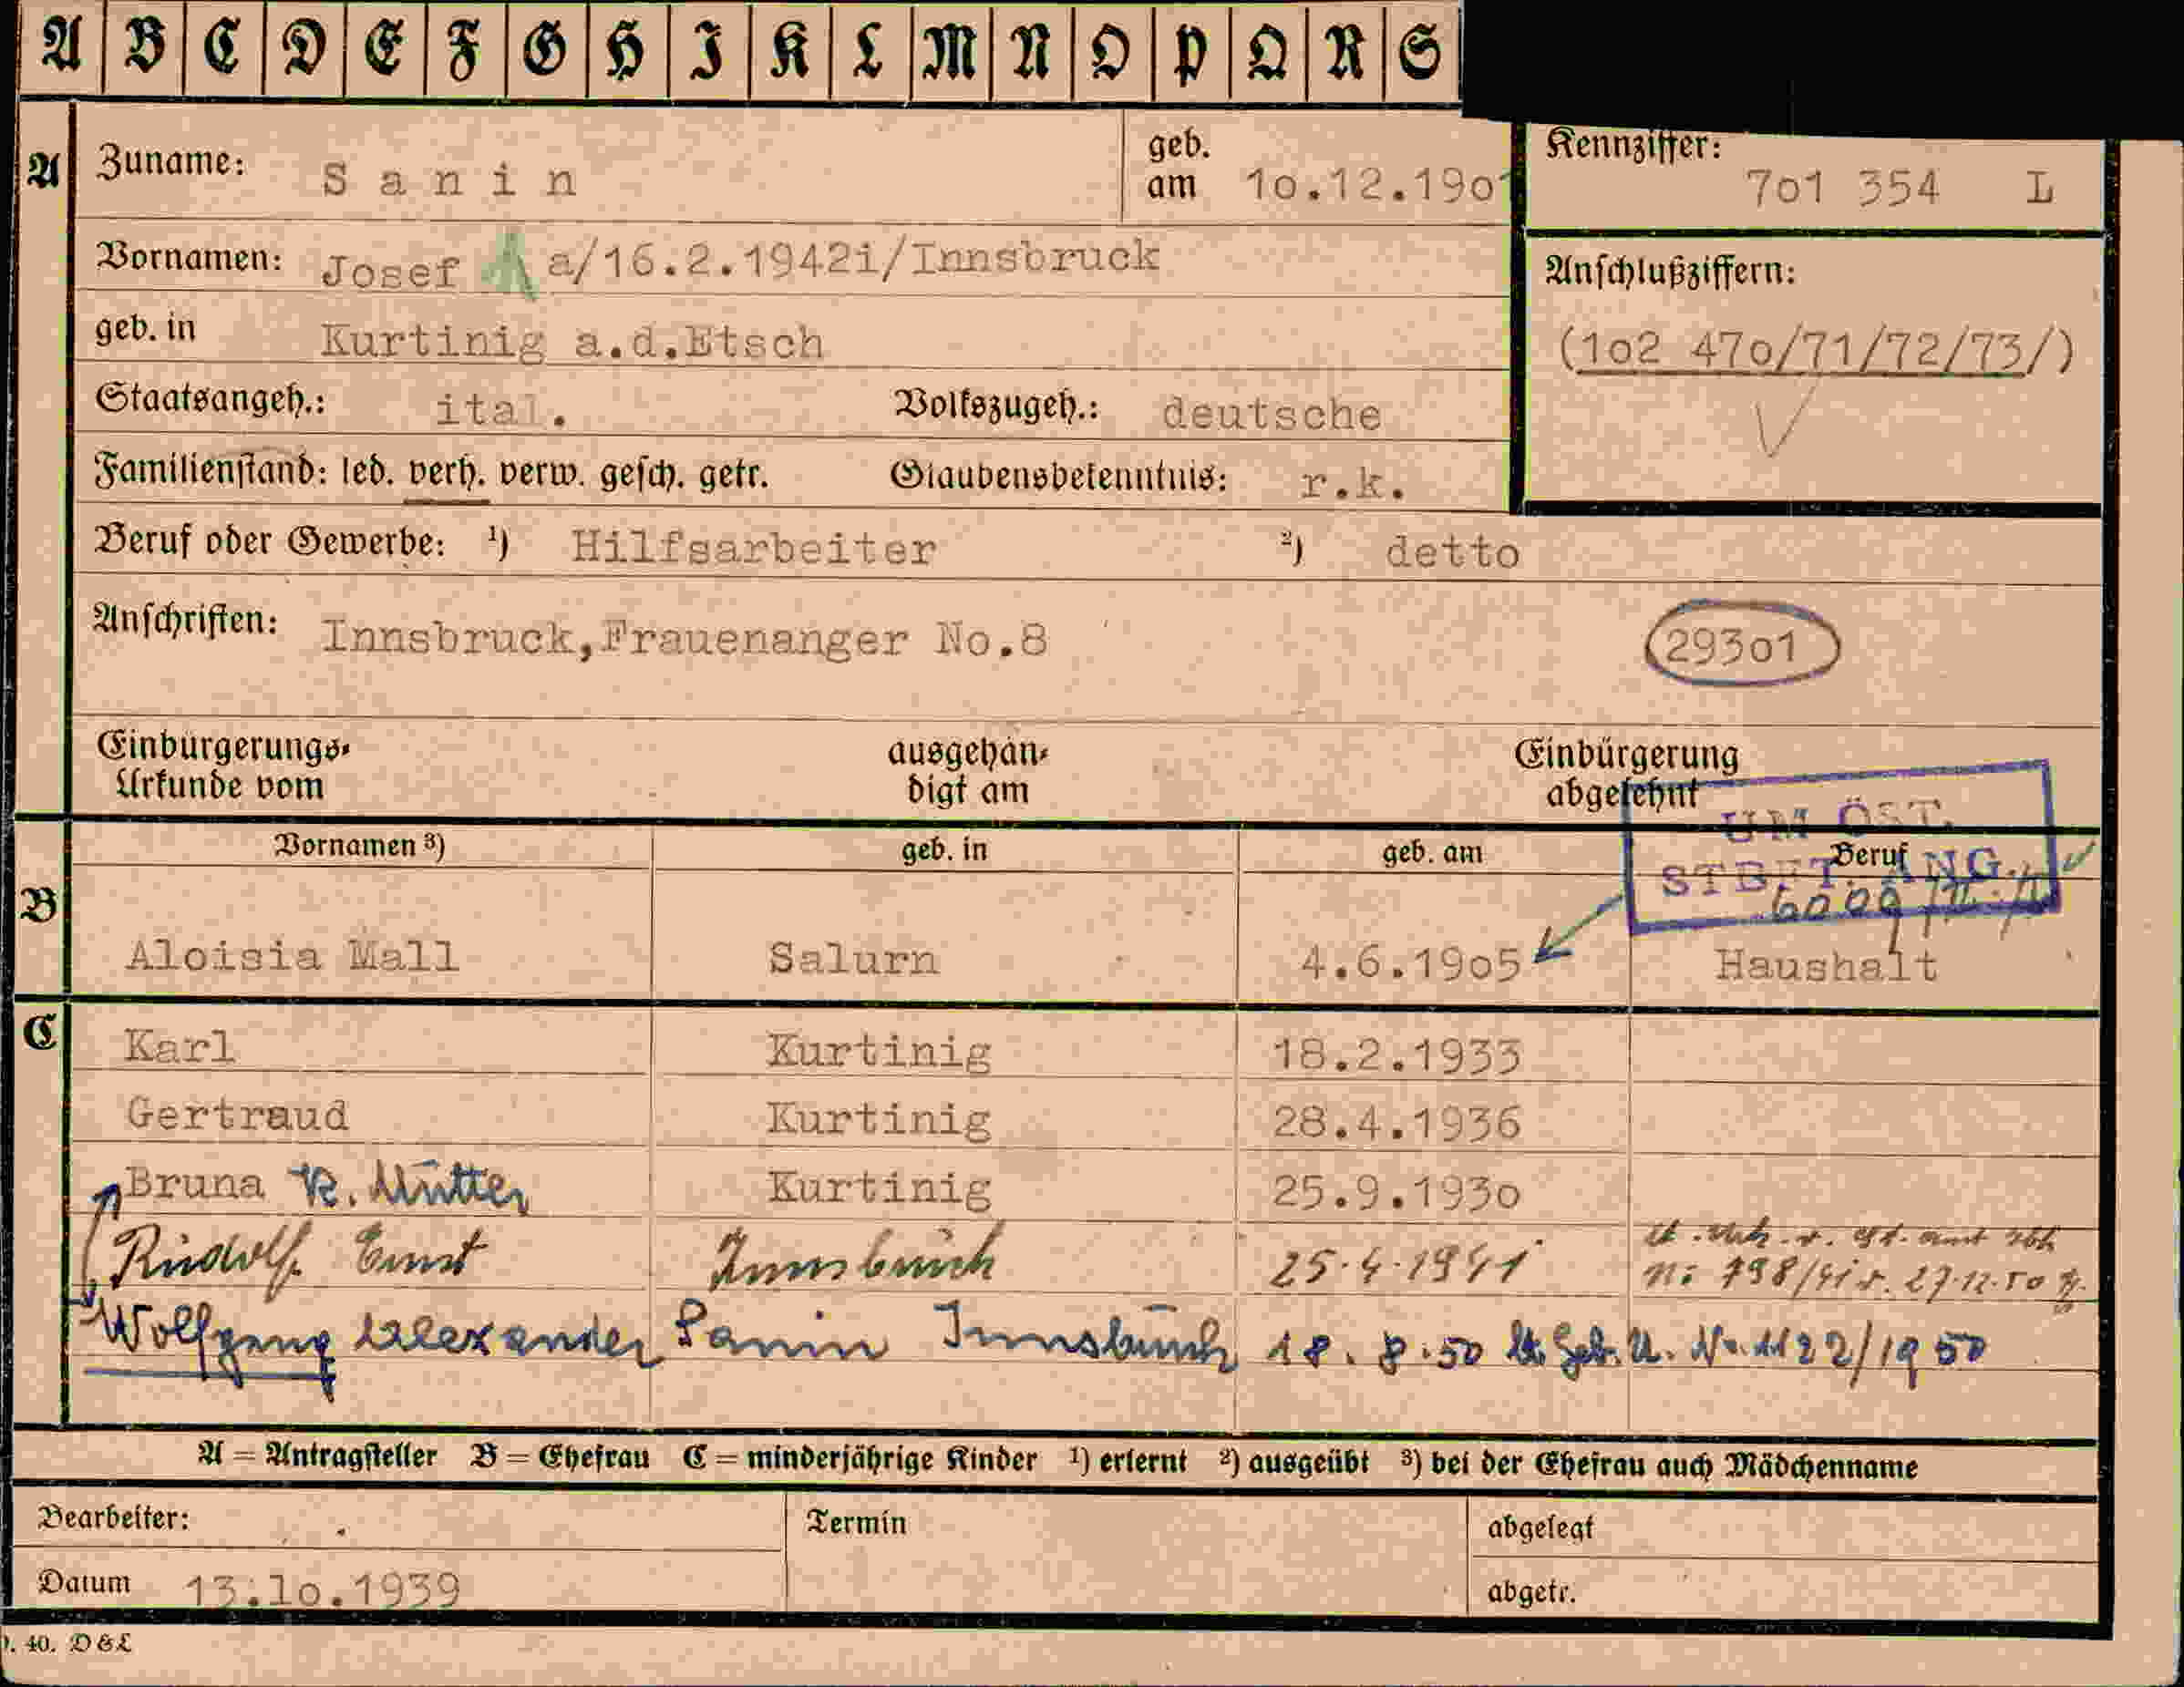 A B C D E F G H I K L M N O P Q R S
A Zuname: Sanin geb. am 10.12.1901 Kennziffer: 701 354 L
Vornamen: Josef a/16.2.1942i/Innsbruck
Anschlußziffern:
geb. in Kurtinig a.d.Etsch (102 470/71/72/73/)
Staatsangeh.: ital. Volkszugeh.: deutsche
Familienstand: led. verh. verw. gesch. getr. Glaubensbekenntnis: r.k.
Beruf oder Gewerbe: ¹) Hilfsarbeiter ²) detto
Anschriften: Innsbruck,Frauenanger No.8 29301
Einbürgerungs-Urkunde vom ausgehändigt am Einbürgerung abgelehnt
UM ÖST.
STBFT. ANG.
B Vornamen ³) geb. in geb. am Beruf
Aloisia Mall Salurn 4.6.1905 Haushalt
C Karl Kurtinig 18.2.1933
Gertraud Kurtinig 28.4.1936
Bruna K. Mutter Kurtinig 25.9.1930
Rudolf Ernst Innsbruck 25.4.1941
N: 798/41 v. 27.12.50
Wolfgang Alexander Sanin Innsbruck 18. 8.50 lt. Geb. U. Nr. 1122/1950
A = Antragsteller B = Ehefrau C = minderjährige Kinder ¹) erlernt ²) ausgeübt ³) bei der Ehefrau auch Mädchenname
Bearbeiter: Termin abgelegt
Datum 13.10.1939 abgetr.
40. D&L